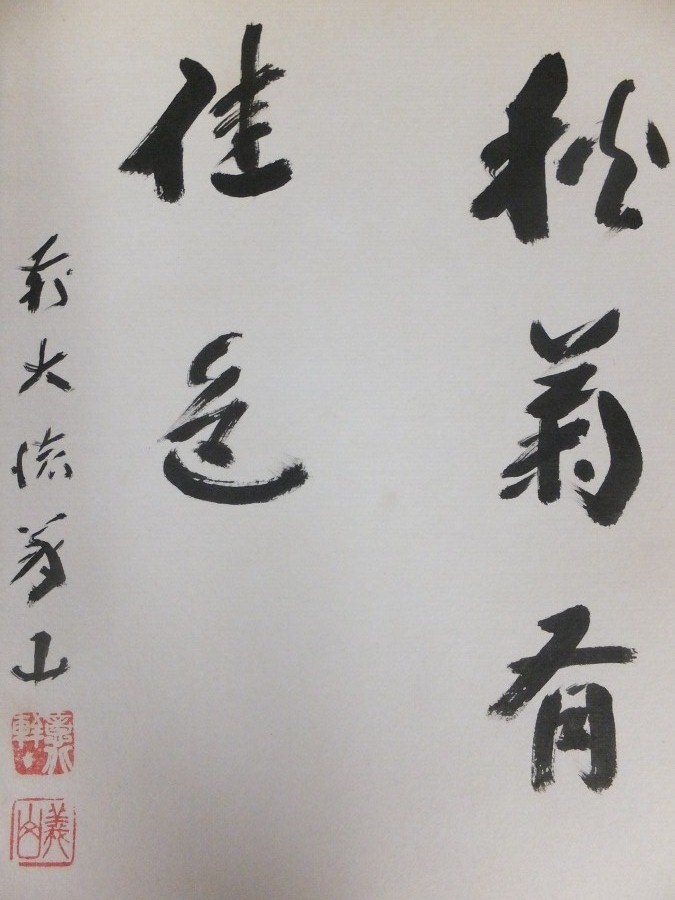 秋菊有
佳色
前大徳義山
義山